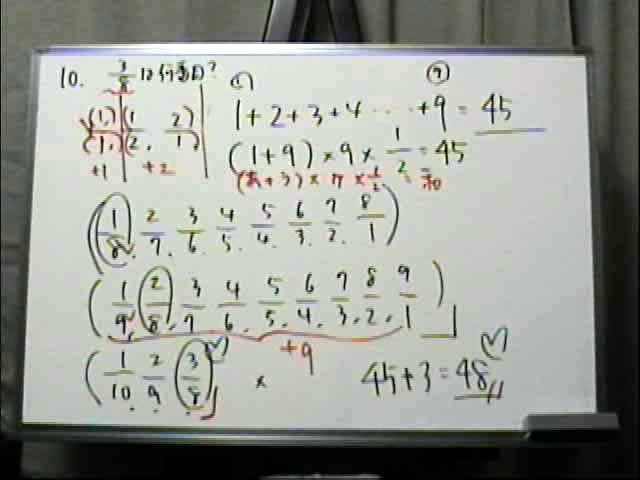 10. 3/8 は何番目?
(1/1)(1/2, 2/1)
+1 +2
1+2+3+4 … +9 = 45
(1+9)×9×1/2=45
(1/8, 2/7, 3/6, 4/5, 5/4, 6/3, 7/2, 8/1)
(1/9, 2/8, 3/7, 4/6, 5/5, 6/4, 7/3, 8/2, 9/1)
+9
(1/10, 2/9, 3/8
45+3=48